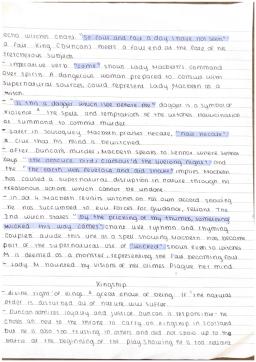 echo witches chant. "So foul and fair a day I have not seen"
a fair King (Duncan) meets a foul end at the fate of his
treacherous subjects
- imperative verb "come" shows Lady Macbeth's command
over spirits. A dangerous woman prepared to consult with
supernatural sources, could represent Lady Macbeth as a
witch.
- "Is this a dagger which I see before me" dagger is a symbol of
violence. The spells and temptations of the witches'
is summoning to commit murder.
- later in soliloquy, Macbeth praises Hecate,
a clue that his mind is bewitched.
- after Duncan's murder, Macbeth speaks to Lennox where Lennox
says "the obscure bird clamour'd the livelong night" and
the "the earth was feverous and did shake" implies Macbeth
has caused a supernatural disruption in nature through his
treasonous actions which cannot be undone.
- in a4 Macbeth revisits witches on his own accord showing
he has succumbed to evil forces for guidance, reliant. The
2nd witch states "by the pricking of my thumbs, something
wicked this way comes" chants use rhythm and rhyming
couplets. audience this line as a spell showing Macbeth has become
part of the supernatural. use of "wicked" shows even to witches
M is deemed as a monster, representing the fair becoming foul.
- Lady M haunted by visions of her crimes. Plague her mind
Kingship
- divine right of kings. A great chain of being. If "the natural
order is disturbed all of nature will suffer.
- Duncan admires loyalty and justice. Duncan is responsible - he
an heir to the throne to carry on kingship in Scotland
but he is also too trusting in others and did not show up to the
battle at the beginning of the play showing he is too reliant